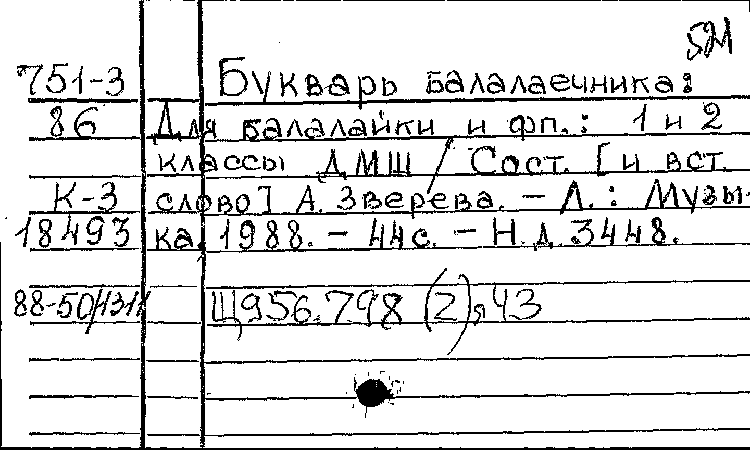 751-3 Букварь балалаечника:
86 Для балалайки и фп.: 1 и 2
классы ДМШ / Сост. [и вст.
К-3 слово] А. Зверева. - Л.: Музы-
18493 ка, 1988. - 44с. - Н.д. 3448.
Щ956.798 (2)я43